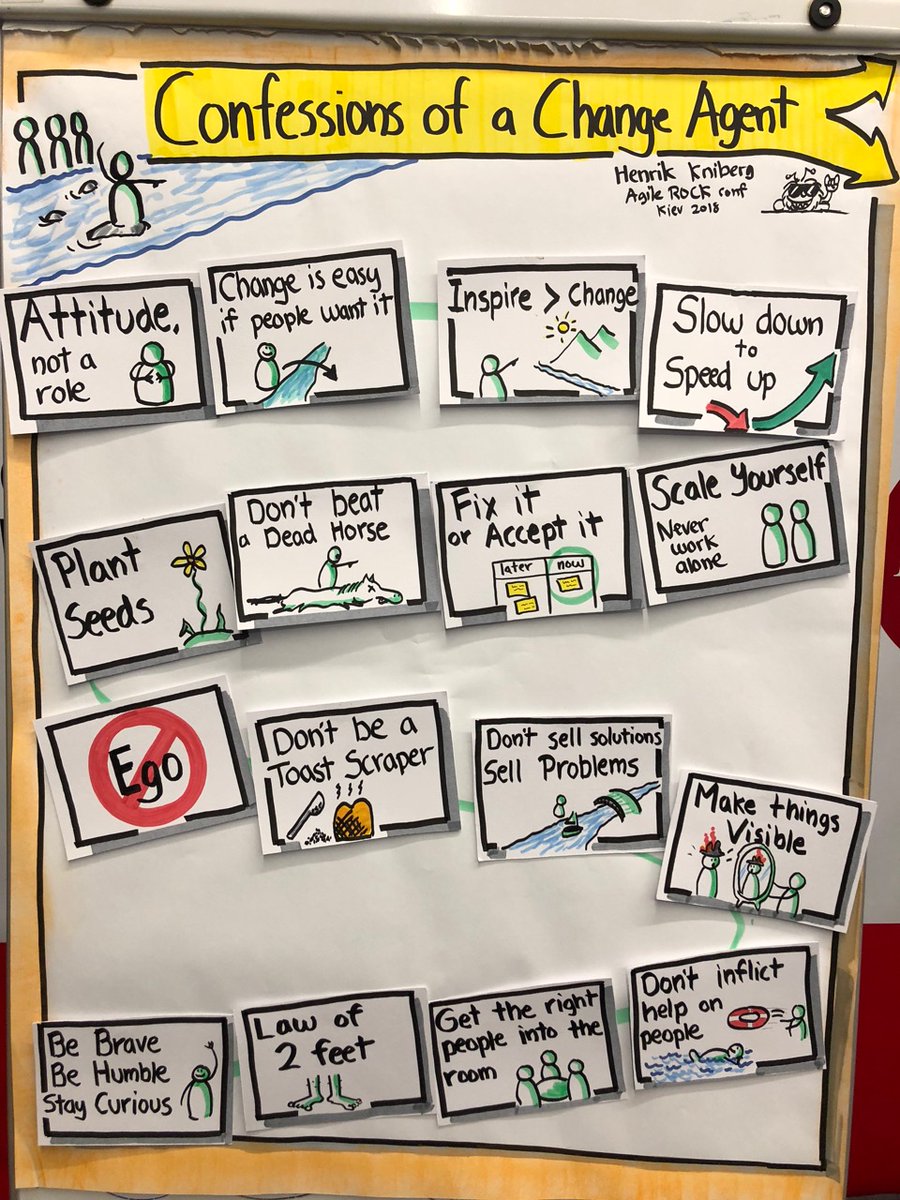 Confessions of a Change Agent
Henrik Kniberg
Agile ROCK conf
Kiev 2018
Attitude,
not a
role
Change is easy
if people want it
Inspire > Change
Slow down
to
Speed up
Plant
Seeds
Don't beat
a Dead Horse
Fix it
or Accept it
later now
Scale Yourself
Never
work
alone
Ego
Don't be a
Toast Scraper
Don't sell solutions
Sell Problems
Make things
Visible
Be Brave
Be Humble
Stay Curious
Law of
2 feet
Get the right
people into the
room
Don't inflict
help on
people